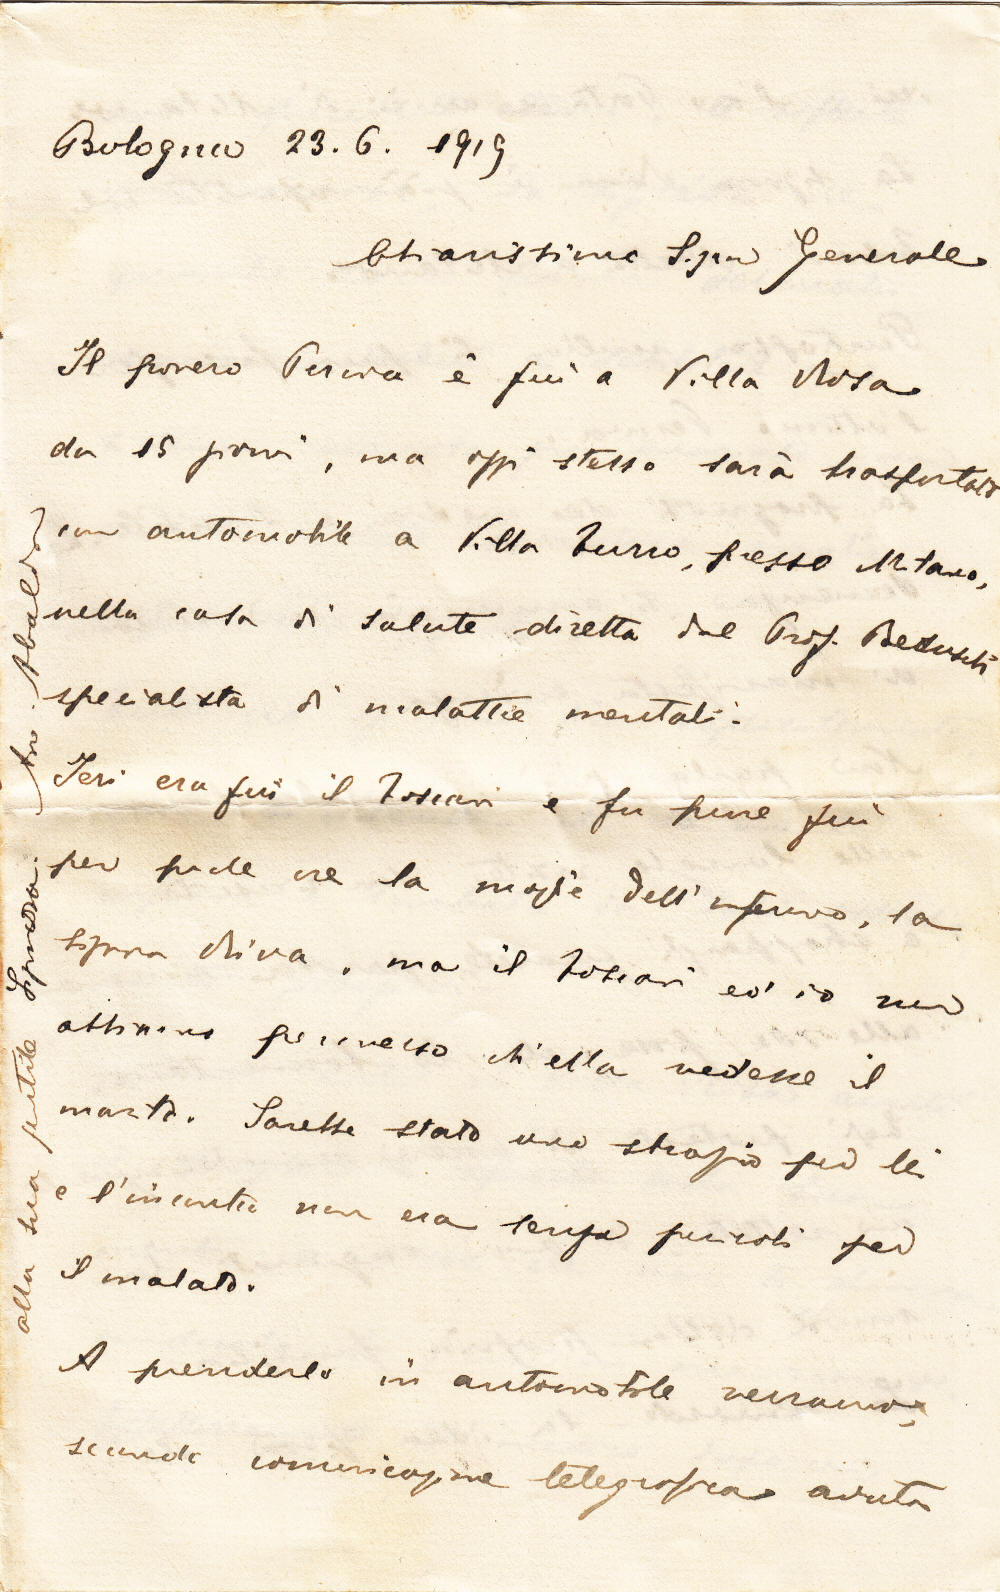 Bologna 23. 6. 1919
Chiarissimo Sign Generale
Il povero è qui a Villa Rosa
da 15 giorni, ma oggi stesso sarà trasportato
con automobile a Villa Turro, presso Milano,
nella casa di salute diretta dal Prof. Beduschi
specialista di malattie mentali.
Ieri era qui il Toscani e fu pure qui
per poche ore la moglie dell'infermo, la
signora , ma il Toscani ed io non
abbiamo permesso ch'ella vedesse il
marito. Sarebbe stato uno strazio per lei
e l'incontro non era senza pericoli per
il malato.
A prenderlo in automobile verranno,
secondo comunicazione telegrafica avuta
alla sua gentile Signora.